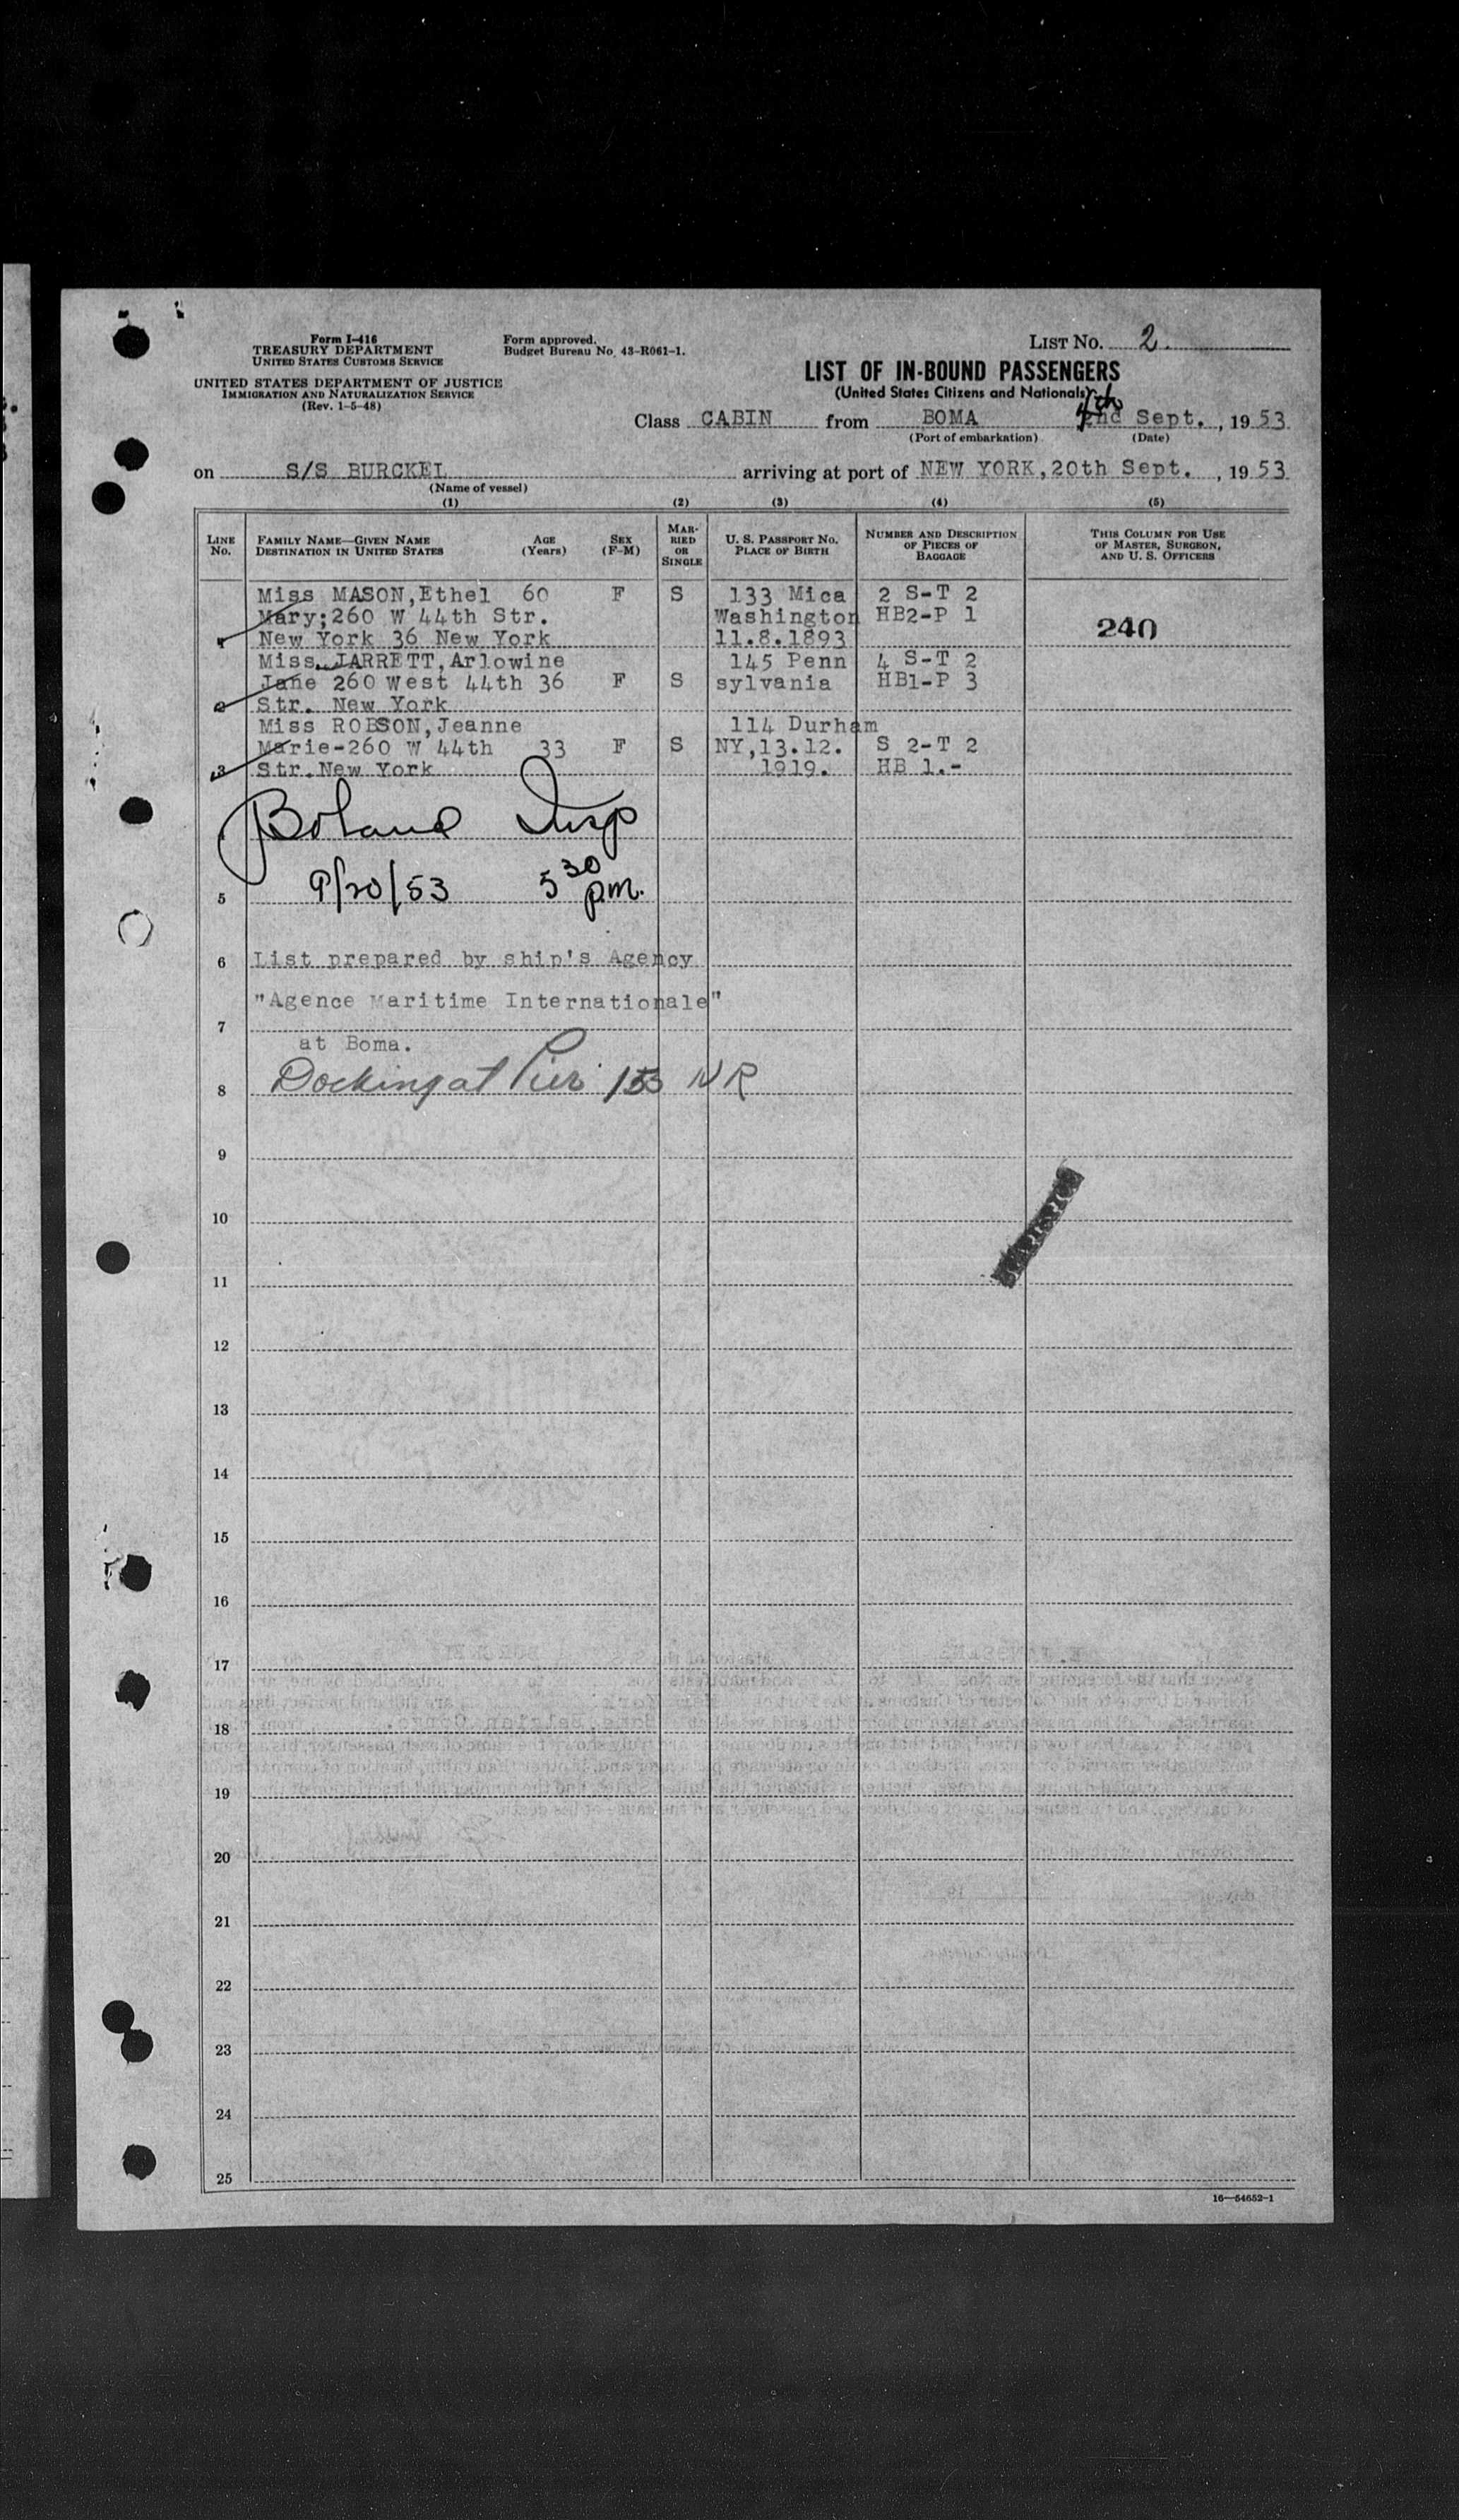 Form I-416
TREASURY DEPARTMENT
UNITED STATES CUSTOMS SERVICE
UNITED STATES DEPARTMENT OF JUSTICE
IMMIGRATION AND NATURALIZATION SERVICE
(Rev. 1-5-48)
Form approved.
Budget Bureau No. 43-R061-1.
LIST NO. 2.
LIST OF IN-BOUND PASSENGERS
(United States Citizens and Nationals)
4th
Class CABIN from BOMA Sept., 1953
(Port of embarkation) (Date)
on S/S BURCKEL arriving at port of NEW YORK, 20th Sept. , 1953
(Name of vessel)
(1) (2) (3) (4) (5)
LINE NO.
FAMILY NAME—GIVEN NAME
DESTINATION IN UNITED STATES
AGE (Years)
SEX (F-M)
MARRIED OR SINGLE
U. S. PASSPORT NO.
PLACE OF BIRTH
NUMBER AND DESCRIPTION OF PIECES OF BAGGAGE
THIS COLUMN FOR USE OF MASTER, SURGEON, AND U. S. OFFICERS
Miss MASON,Ethel 60 F S 133 Mica 2 S-T 2
Mary;260 W 44th Str. Washington HB2-P 1
1 New York 36 New York 11.8.1893 240
Miss JARRETT,Arlowine 145 Penn 4 S-T 2
Jane 260 West 44th 36 F S sylvania HB1-P 3
2 Str. New York
Miss ROBSON,Jeanne 114 Durham
Marie-260 W 44th 33 F S NY,13.12. S 2-T 2
3 Str.New York 1919. HB 1.-
4 Boland Insp
9/20/53 5 30 p.m.
5
6 List prepared by ship's Agency
"Agence Maritime Internationale"
7
at Boma.
8 Docking at Pier NR
9
10
11
12
13
14
15
16
17
18
19
20
21
22
23
24
25
16—54652-1